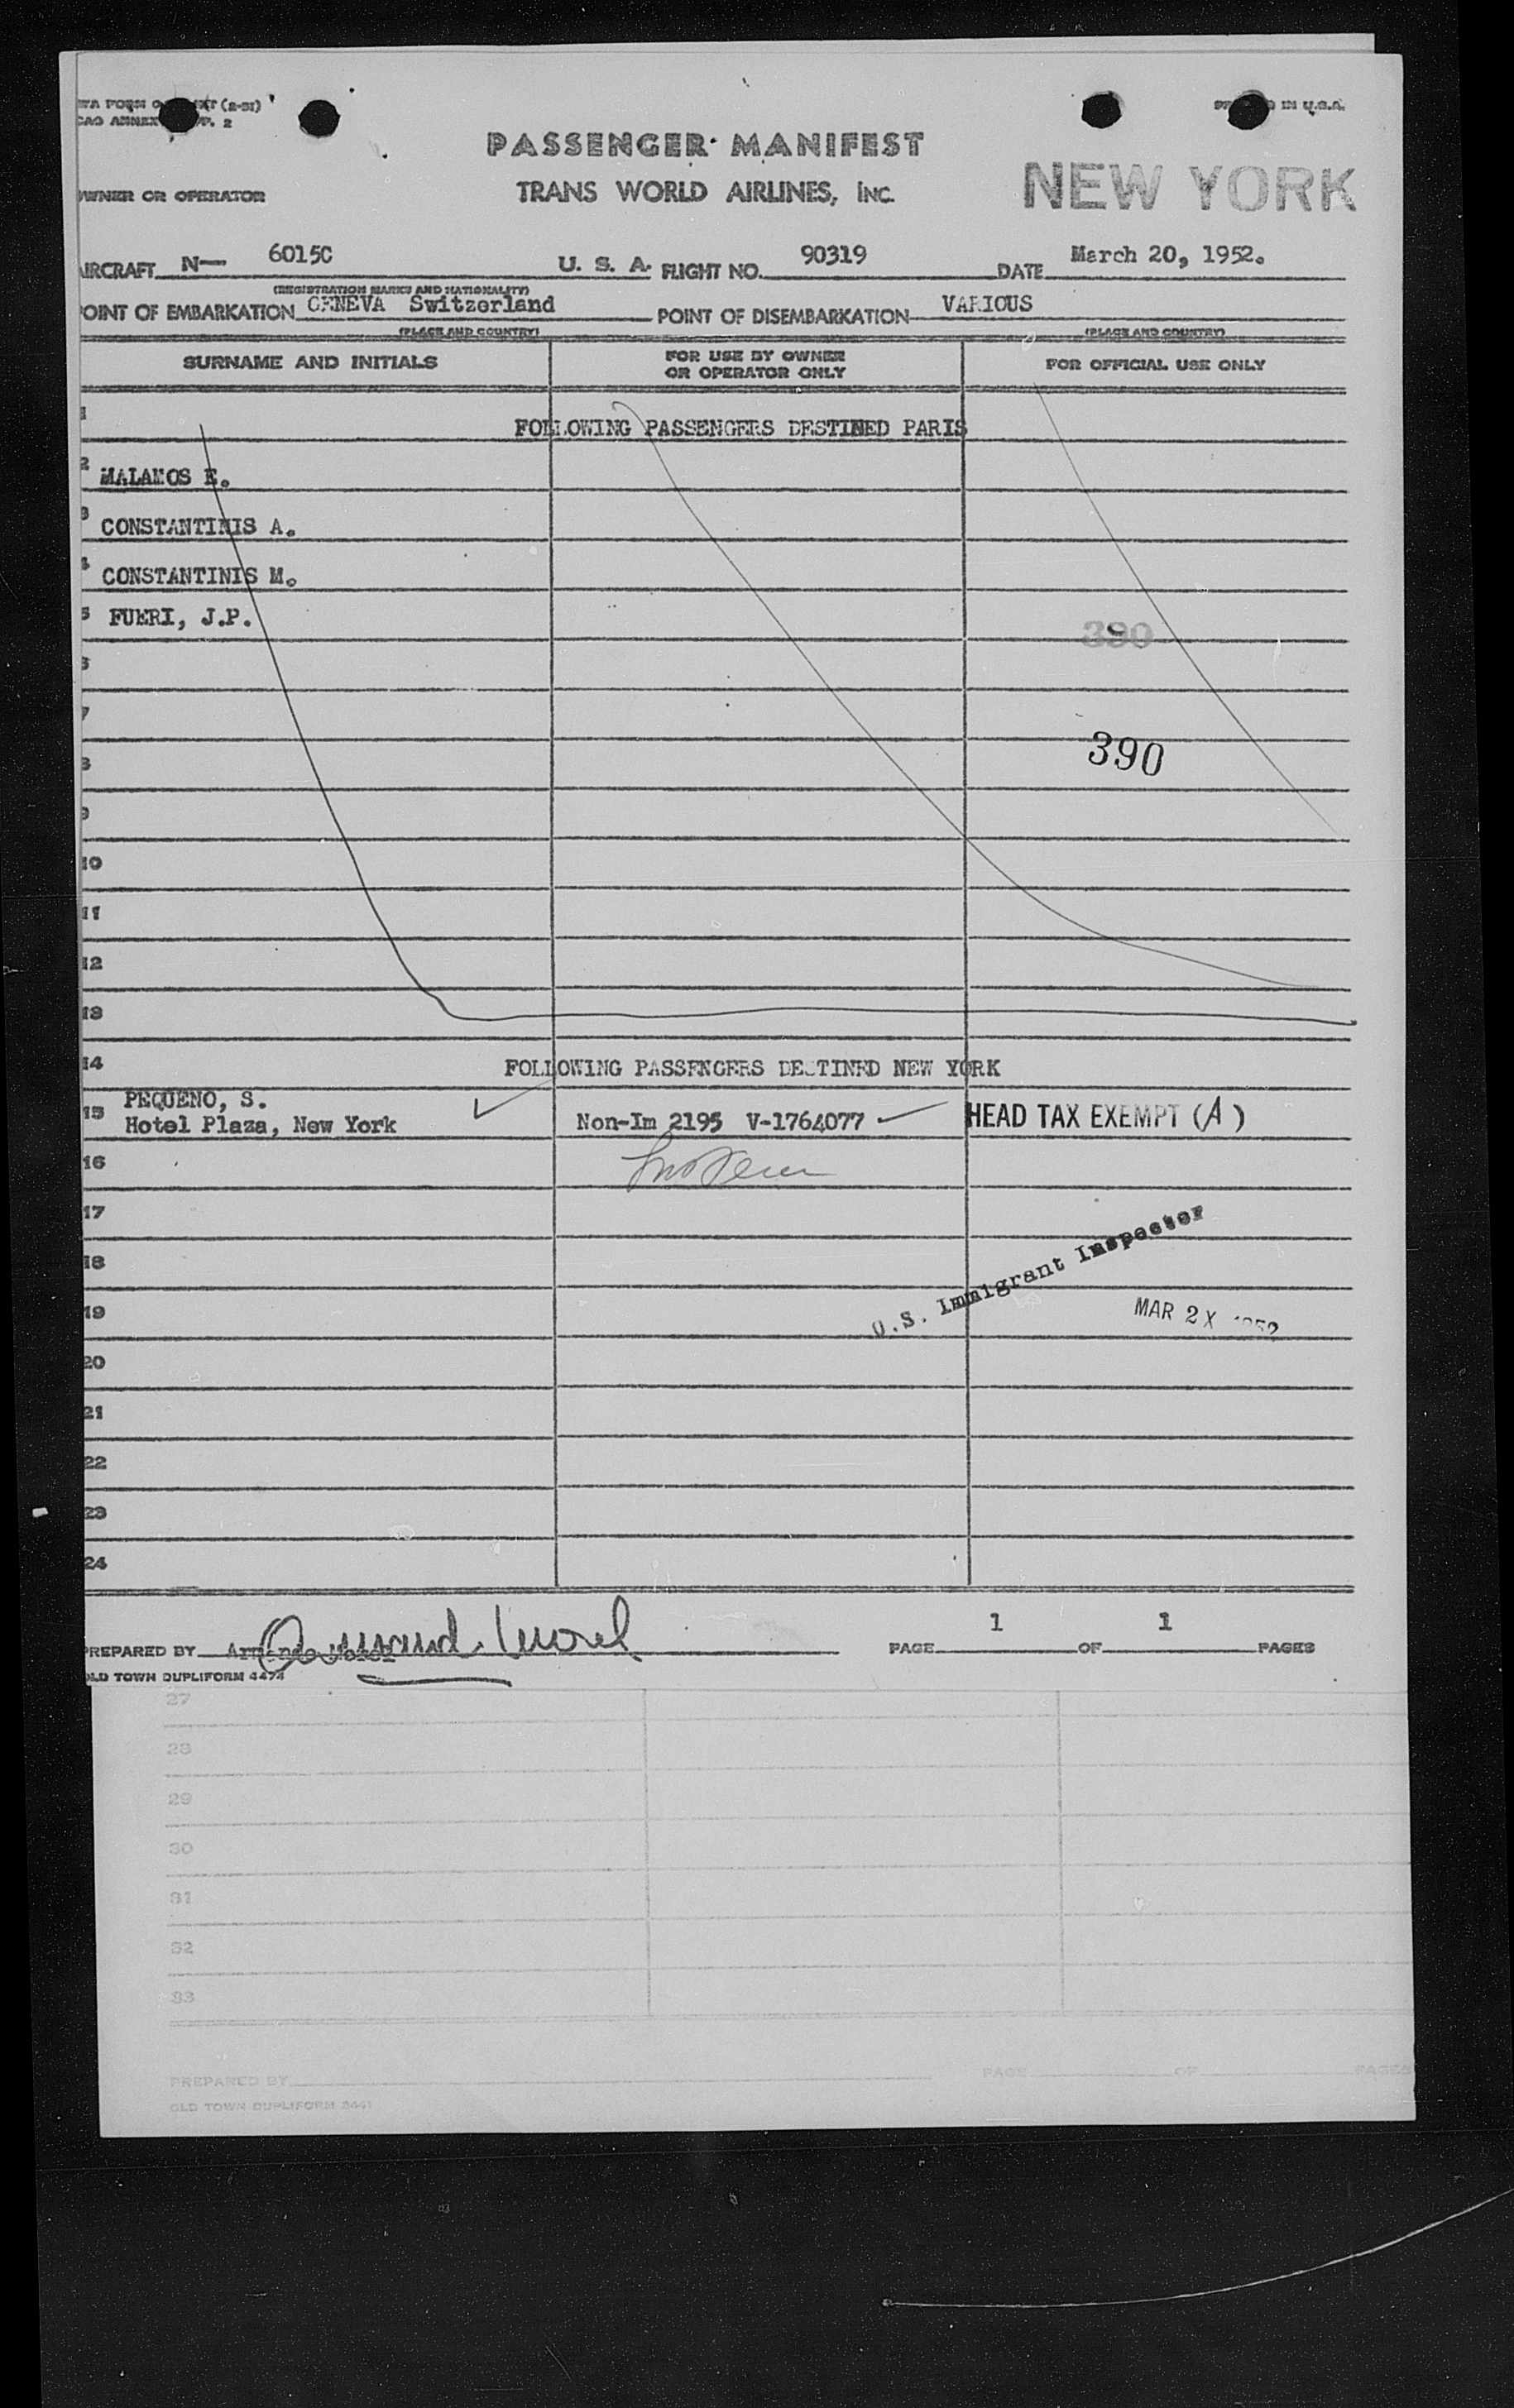 PASSENGER MANIFEST
TRANS WORLD AIRLINES, INC.
NEW YORK
OWNER OR OPERATOR
AIRCRAFT N— 6015C U. S. A. FLIGHT NO. 90319 DATE March 20, 1952.
(REGISTRATION MARKS AND NATIONALITY)
POINT OF EMBARKATION GENEVA Switzerland POINT OF DISEMBARKATION VARIOUS
(PLACE AND COUNTRY) (PLACE AND COUNTRY)
SURNAME AND INITIALS FOR USE BY OWNER OR OPERATOR ONLY FOR OFFICIAL USE ONLY
1 FOLLOWING PASSENGERS DESTINED PARIS
2 MALAMOS E.
3 CONSTANTINIS A.
4 CONSTANTINIS M.
5 FUERI, J.P.
390
6
7
390
8
9
10
11
12
13
14 FOLLOWING PASSENGERS DESTINED NEW YORK
PEQUENO, S.
15 Hotel Plaza, New York Non-Im 2195 V-1764077 HEAD TAX EXEMPT (A)
16
17
U.S. Immigrant Inspector
18
19 MAR 2X 1952
20
21
22
23
24
PREPARED BY PAGE 1 OF 1 PAGES
OLD TOWN DUPLIFORM 4474
27
28
29
30
31
32
33
PREPARED BY PAGE OF PAGES
OLD TOWN DUPLIFORM 3441